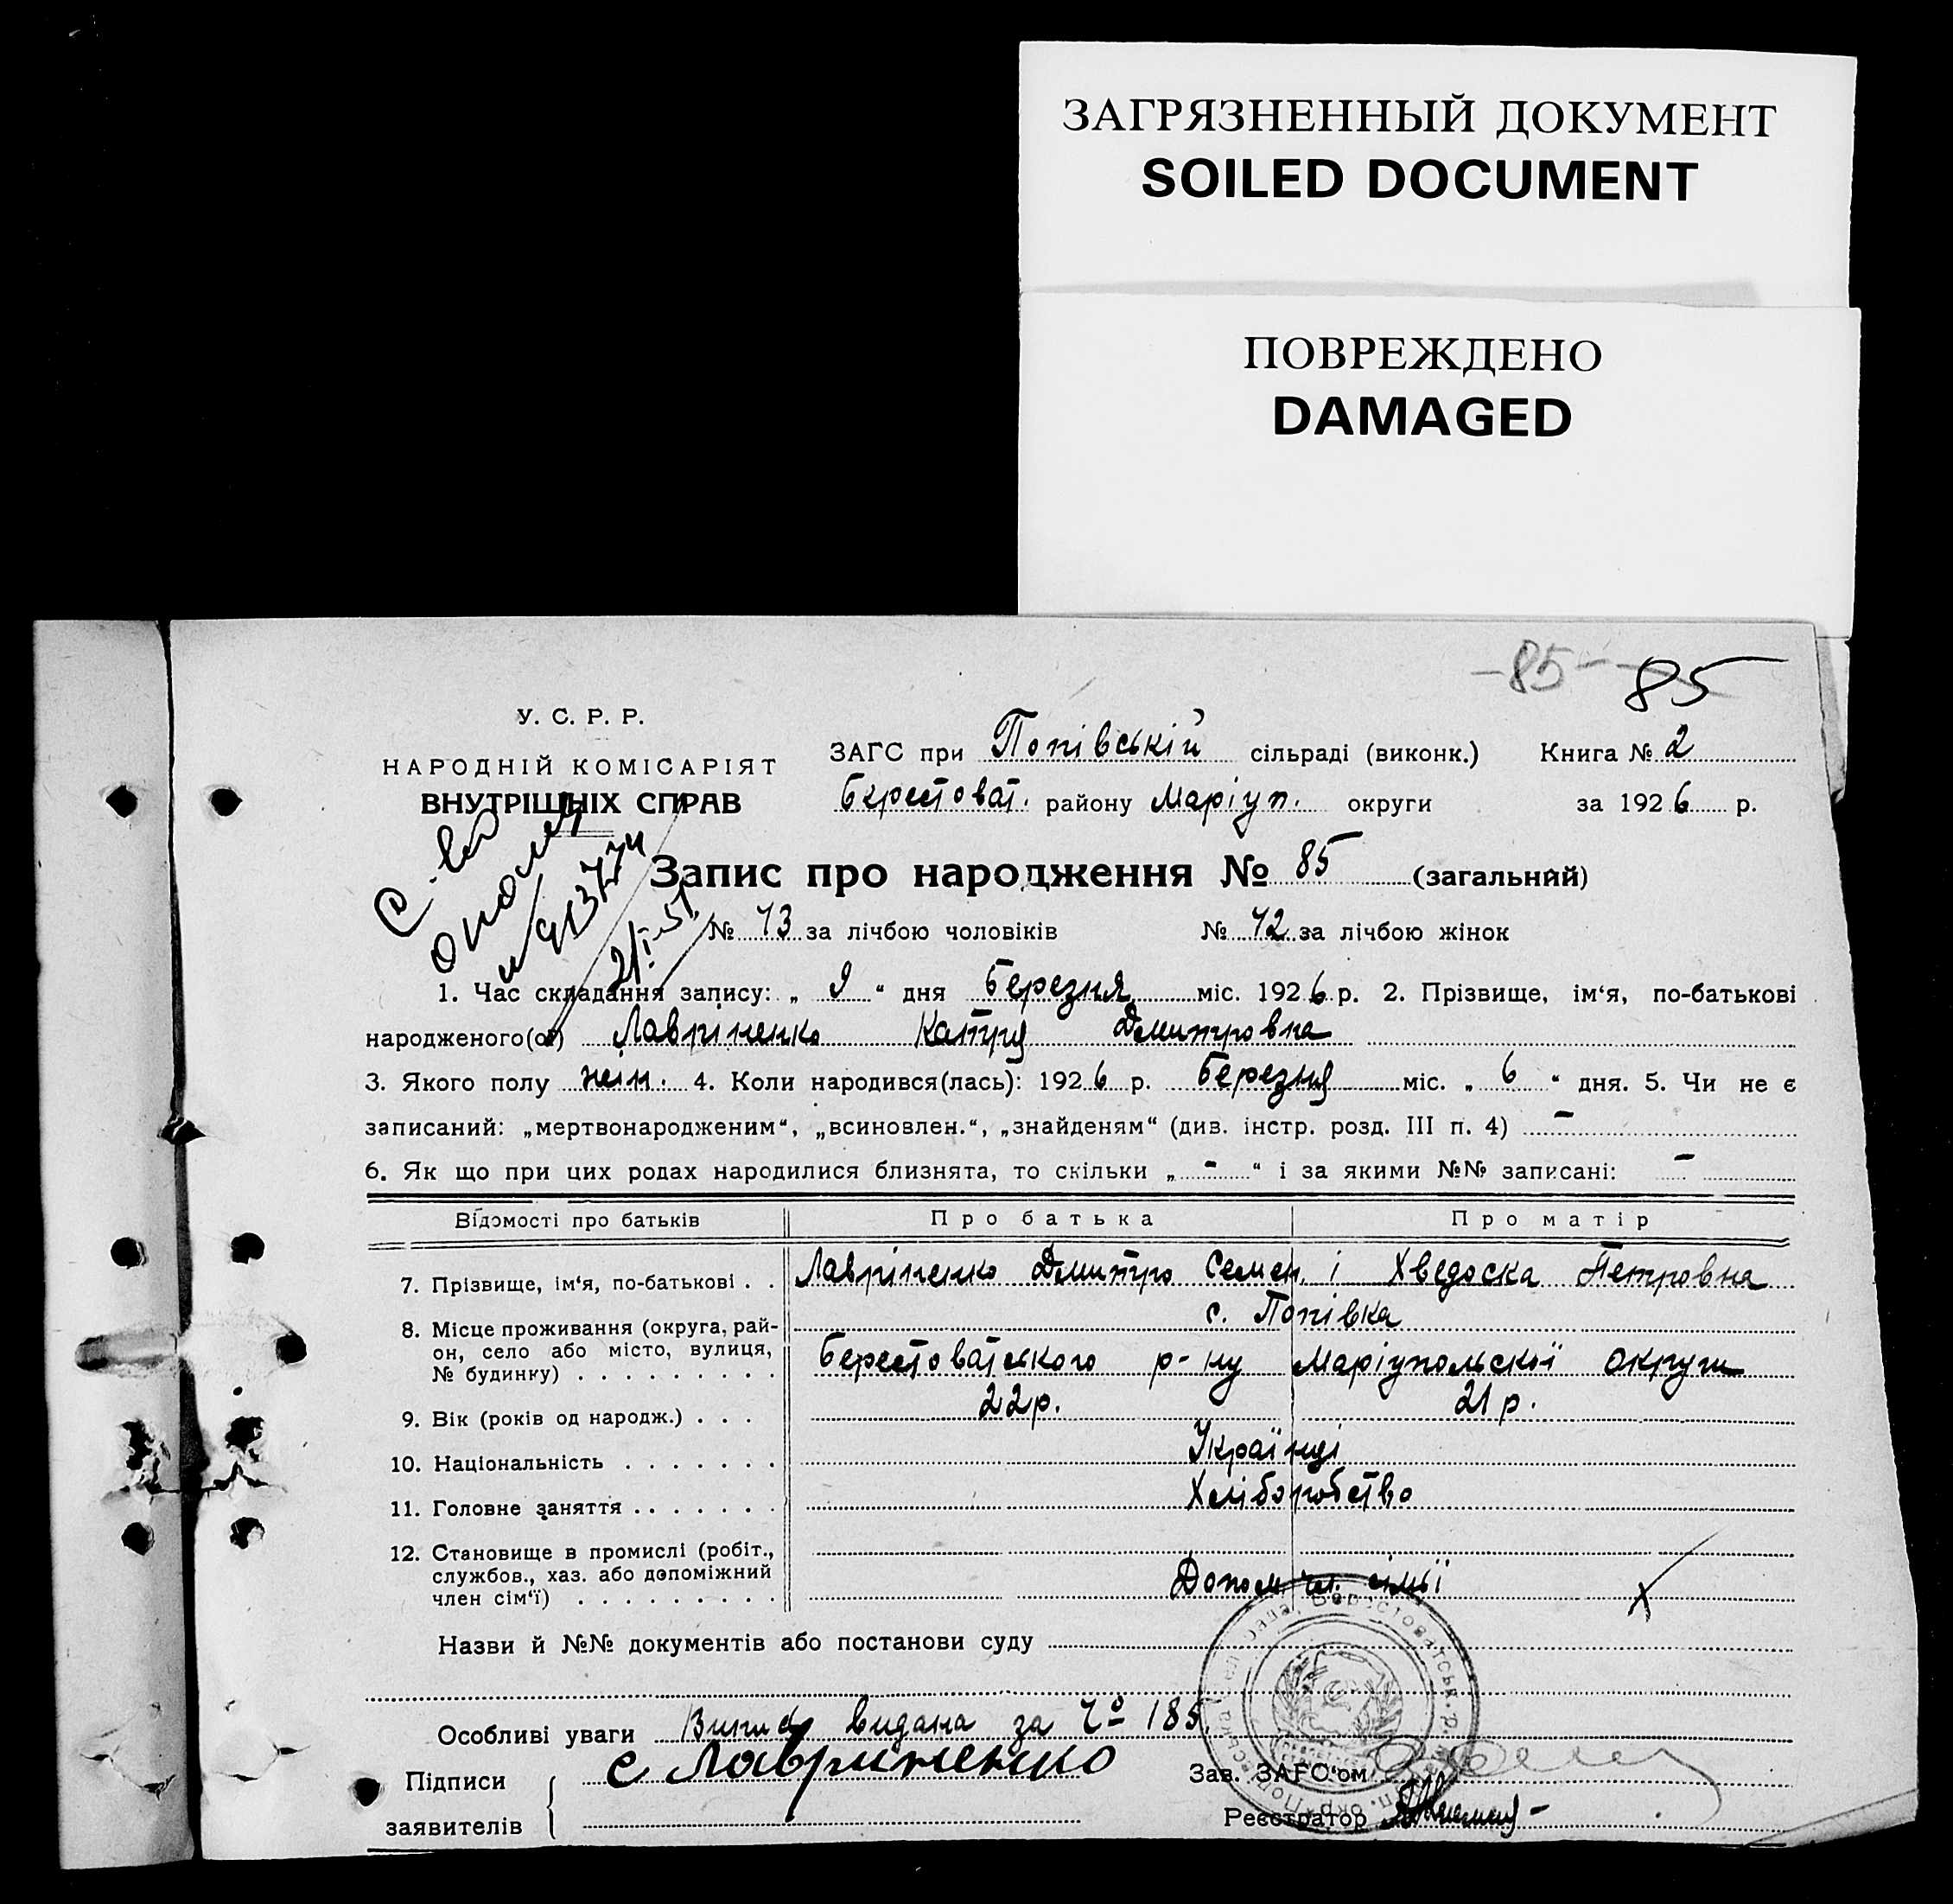 ЗАГРЯЗНЕННЫЙ ДОКУМЕНТ
SOILED DOCUMENT
ПОВРЕЖДЕНО
DAMAGED
-85- 85
У. С. Р. Р.
НАРОДНІЙ КОМІСАРІЯТ
ВНУТРІШНІХ СПРАВ
ЗАГС при Попівській сільраді (виконк.) Книга № 2
Берестоват. району Маріуп. округи за 1926 р.
Запис про народження № 85 (загальний)
№ 43 за лічбою чоловіків № 42 за лічбою жінок
1. Час складання запису: „ 9 “ дня Березня міс. 1926 р. 2. Прізвище, ім‘я, по-батькові
народженого(ої) Лавріненко Катря Дмитровна
3. Якого полу жін. 4. Коли народився(лась): 1926 р. Березня міс. „ 6 “ дня. 5. Чи не є
записаний: „мертвонародженим“, „всиновлен.“, „знайденям“ (див. інстр. розд. III п. 4) -
6. Як що при цих родах народилися близнята, то скільки „ - “ і за якими №№ записані: -
Відомості про батьків Про батька Про матір
7. Прізвище, ім‘я, по-батькові . . Лавріненко Дмитро Семен. і Хведоска Петровна
8. Місце проживання (округа, рай- с. Попівка
он, село або місто, вулиця, Берестоватського р-ну Маріупольскої округи
№ будинку) . . . . . . . . .
9. Вік (років од народж.) . . . 22 р. 21 р.
10. Національність . . . . . . . Українці
11. Головне заняття . . . . . . Хліборобство
12. Становище в промислі (робіт.,
службов., хаз. або допоміжний Допом. чл. сімьї
член сім‘ї) . . . . . . . . .
Назви й №№ документів або постанови суду
Особливі уваги видана за № 185.
Підписи с Лавриненко Зав. ЗАГС‘ом
заявителів Реєстратор